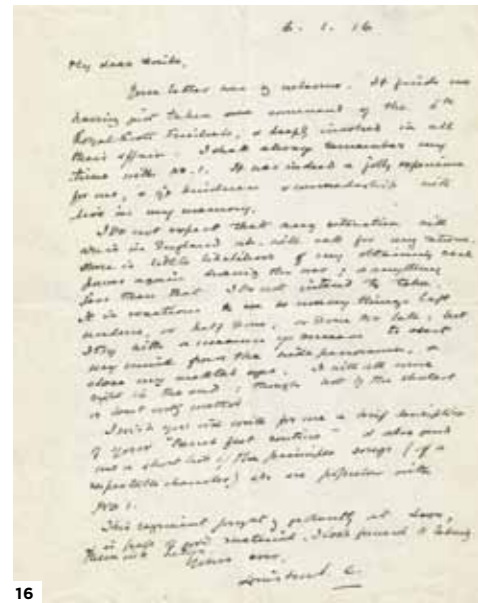 6. 1. 16
My dear
Your letter was welcome. It finds me
having just taken over command of the 6th
Royal Scots Fusiliers, & deeply involved in all
their affairs. I shall always remember my
time with No. 1. It was indeed a jolly experience
for me, & kindness & comradeship will
live in my memory.
I do not expect that any situation will
arise in England wh. will call for my return.
there is little likelihood of my obtaining real
power again during this war; & anything
less than that I do not intend to take.
It is to see so many things left
undone, or half done, or done too late; but
I try with a measure of success to
my mind from the wide panorama, &
close my eyes. It will all come
right in the end; though not by the shortest
or
I wish you wd write for me a brief description
of your routine & also send
me a short list of the principal songs (of a
respectable character) wh are popular with
No 1.
This regiment at Loos,
is full of good material.
Yours ever,
Winston S. C.
16